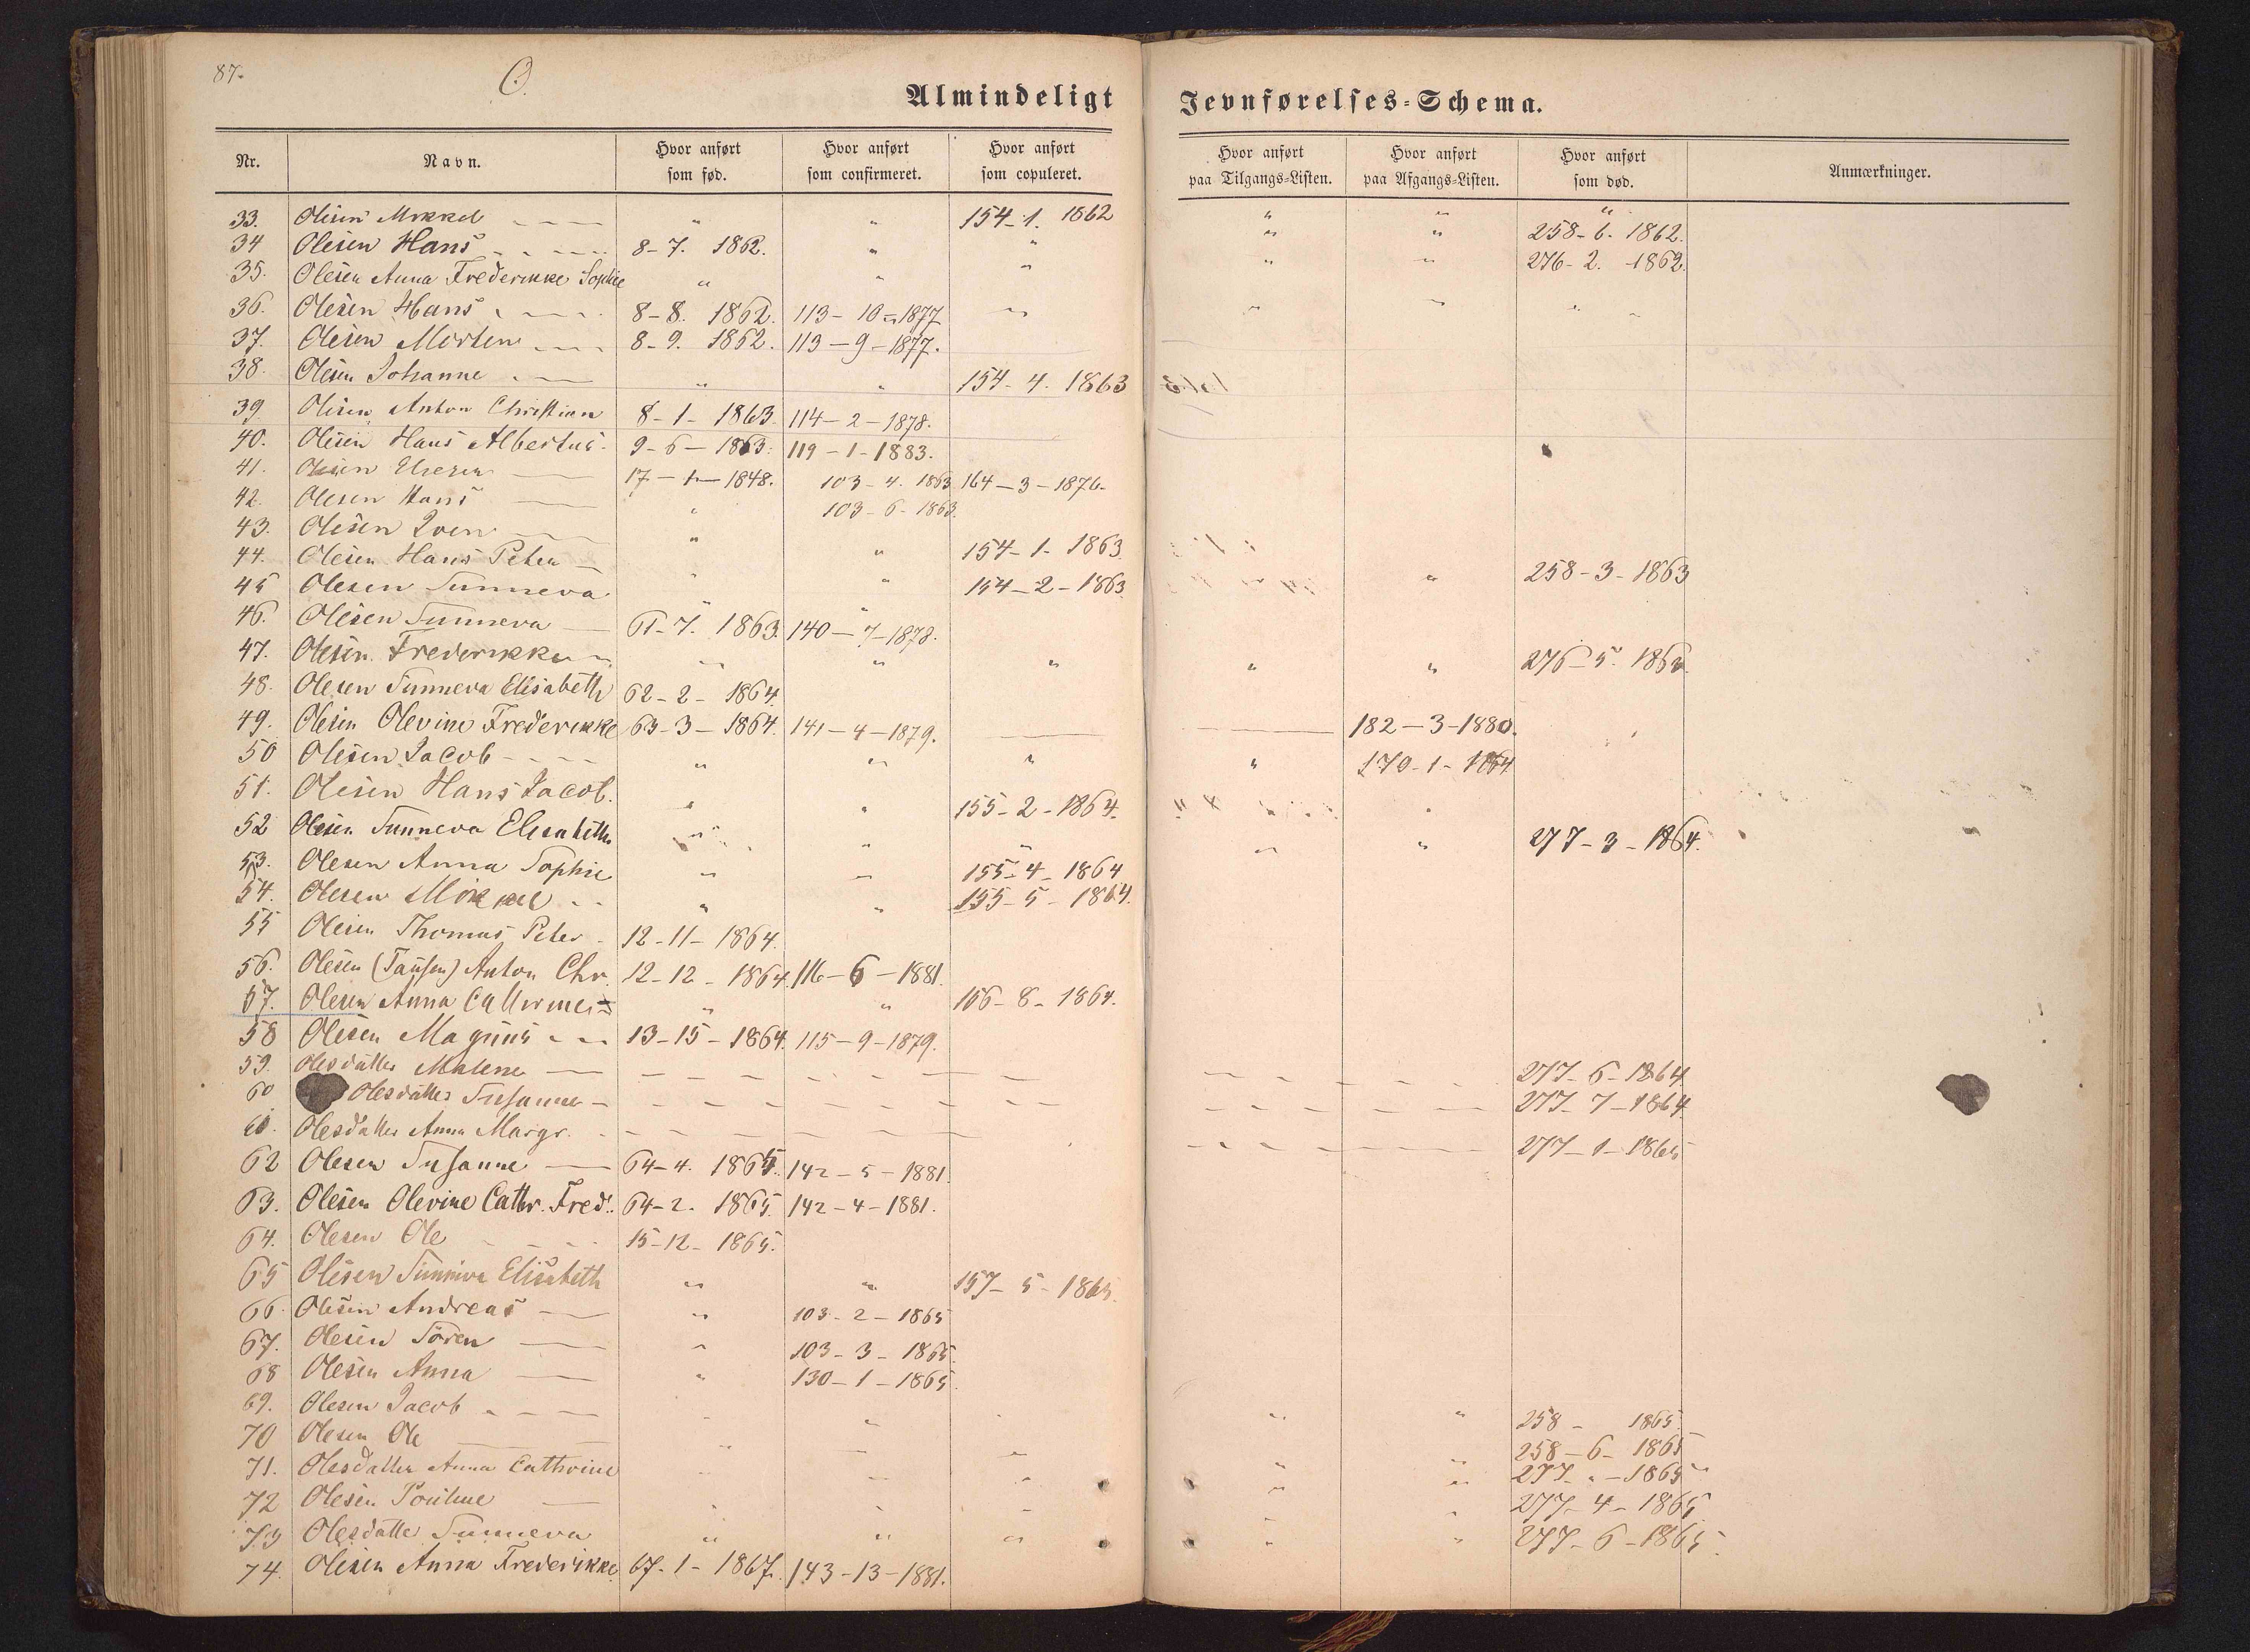 87.
O.
Almindeligt Jevnførelses-Schema.
Nr. Navn. Hvor anført som fød. Hvor anført som confirmeret. Hvor anført som copuleret. Hvor anført paa Tilgangs-Listen. Hvor anført paa Afgangs-Listen. Hvor anført som død. Anmærkninger.
33. Olesen Mikkel " " 154-1. 1862 " " "
34 Olesen Hans 8-7. 1862. " " " " 258-6. 1862.
35. Olesen Anna Frederikke Sophie " " " " " 276-2. -1862.
36. Olesen Hans 8-8. 1862. 113-10-1877 " " " "
37. Olesen Morten 8-9. 1862. 113-9-1877.
38. Olesen Johanne " " 154-4. 1863
39. Olesen Anton Christian 8-1-1863. 114-2-1878.
40. Olesen Hans Albertus. 9-6-1863. 119-1-1883.
41. Olesen 17-1-1848. 103-4. 1863 164-3-1876.
42. Olesen Hans " 103-6-1863.
43. Olesen Iven " " 154-1-1863.
44. Olesen Hans Peter " " " 258-3-1863
45 Olesen Sunneva " " 154-2-1863
46. Olesen Sunneva 61-7. 1863. 140-7-1878.
47. Olesen Frederikke " " " " " 276-5. 1863.
48. Olesen Sunneva Elisabeth 62-2-1864.
49. Olesen Olevine Frederikke 63-3-1864. 141-4-1879. 182-3-1880.
50 Olesen Jacob " " " " 170-1-1864
51. Olesen Hans Jacob. " " 155-2-1864.
52 Olesen Sunneva Elisabeth " " " " " 277-3-1864.
53. Olesen Anna Sophie " " 155-4-1864
54. Olesen Mikkel " " 155-5-1864.
55 Olesen Thomas Peter 12-11-1864.
56. Olesen (Tausen) Anton Chr. 12-12-1864. 116-6-1881.
57. Olesen Anna Cathrine " " 156-8-1864.
58 Olesen Magnus 13-15-1864. 115-9-1879.
59. Olesdatter Malene 277-6-1864.
60 Olesdatter Susanne 277-7-1864.
61. Olesdatter Anna Margr. 277-1-1865
62 Olesen Susanne 64-4. 1865. 142-5-1881.
63. Olesen Olevine Cathr. Fred. 64-2. 1865. 142-4-1881.
64. Olesen Ole 15-12-1865.
65 Olesen Sunniva Elisabeth " " 157-5-1865.
66. Olesen Andreas " 103-2-1865
67. Olesen Sören " 103-3-1865.
68 Olesen Anna " 130-1-1865.
69. Olesen Jacob " " " " " 258- 1865.
70 Olesen Ole " " " " " 258-6-1865
71. Olesdatter Anna Cathrine " " " " " 277-"-1865
72 Olesen Pouline " " " " " 277-4-1865
73 Olesdatter Sunneva " " " " " 277-6-1865.
74. Olesen Anna Frederikke 67-1-1867. 143-13-1881.